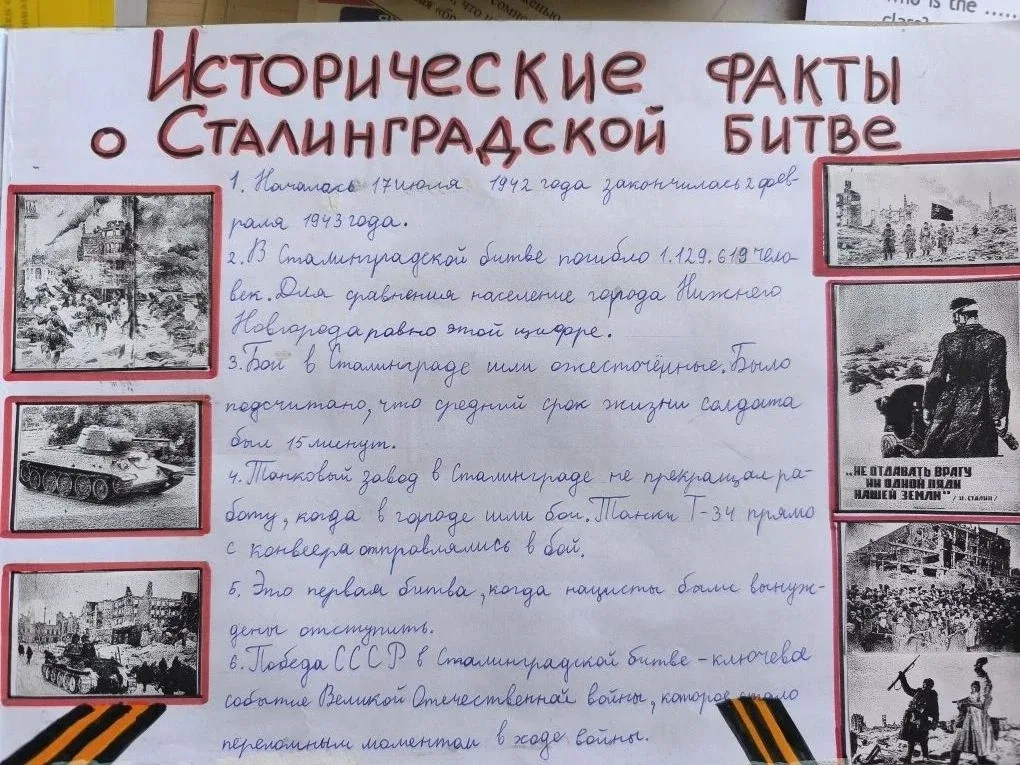 Исторические факты
о Сталинградской битве
1. Началась 17 июля 1942 года закончилась 2 фев-
раля 1943 года.
2. В Сталинградской битве погибло 1.129.619 чело-
век. Для сравнения население города Нижнего
Новгорода равно этой цифре.
3. Бои в Сталинграде шли ожесточённые. Было
подсчитано, что средний срок жизни солдата
был 15 минут.
4. Танковый завод в Сталинграде не прекращал ра-
боту, когда в городе шли бои. Танки Т-34 прямо
с конвеера отправлялись в бой.
5. Это первая битва, когда нацисты были вынуж-
дены отступить.
6. Победа СССР в Сталинградской битве - ключевое
событие Великой Отечественной войны, которое стало
переломным моментом в ходе войны.
„НЕ ОТДАВАТЬ ВРАГУ
НИ ОДНОЙ ПЯДИ
НАШЕЙ ЗЕМЛИ" /И. СТАЛИН/
is the ......